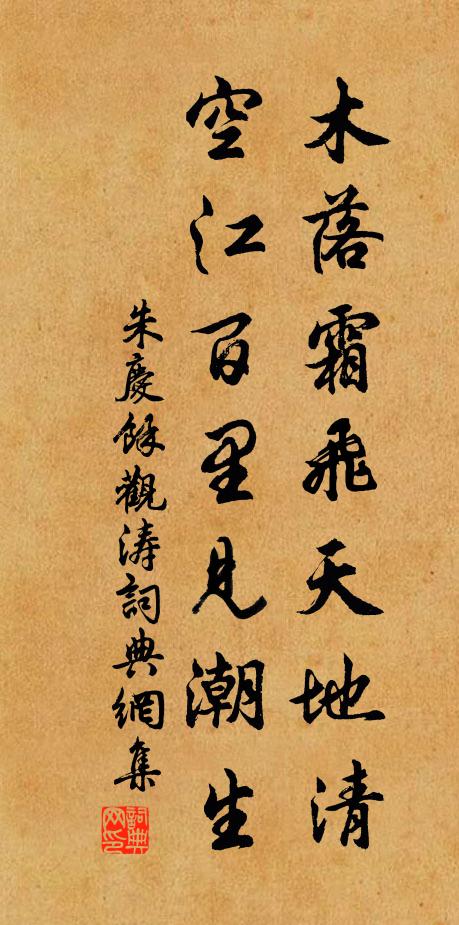 木落霜飛天地清
空江百里見潮生
朱慶餘觀濤詞典網集
詞典網印